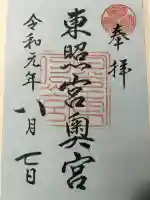 奉拝
東照宮奥宮
令和元年
八月七日